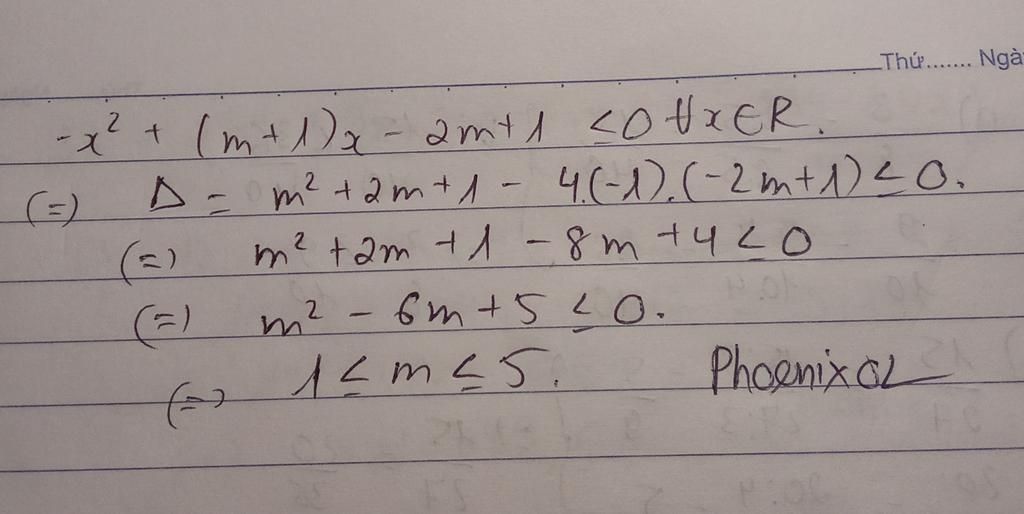 Thứ....... Ngà
-x² + (m+1)x - 2m+1 ≤0 ∀x∈R.
(=) Δ = m² + 2m + 1 - 4.(-1).(-2m+1) ≤ 0.
(=) m² + 2m + 1 - 8m + 4 ≤ 0
(=) m² - 6m + 5 ≤ 0.
(=) 1 ≤ m ≤ 5. PhoenixCL